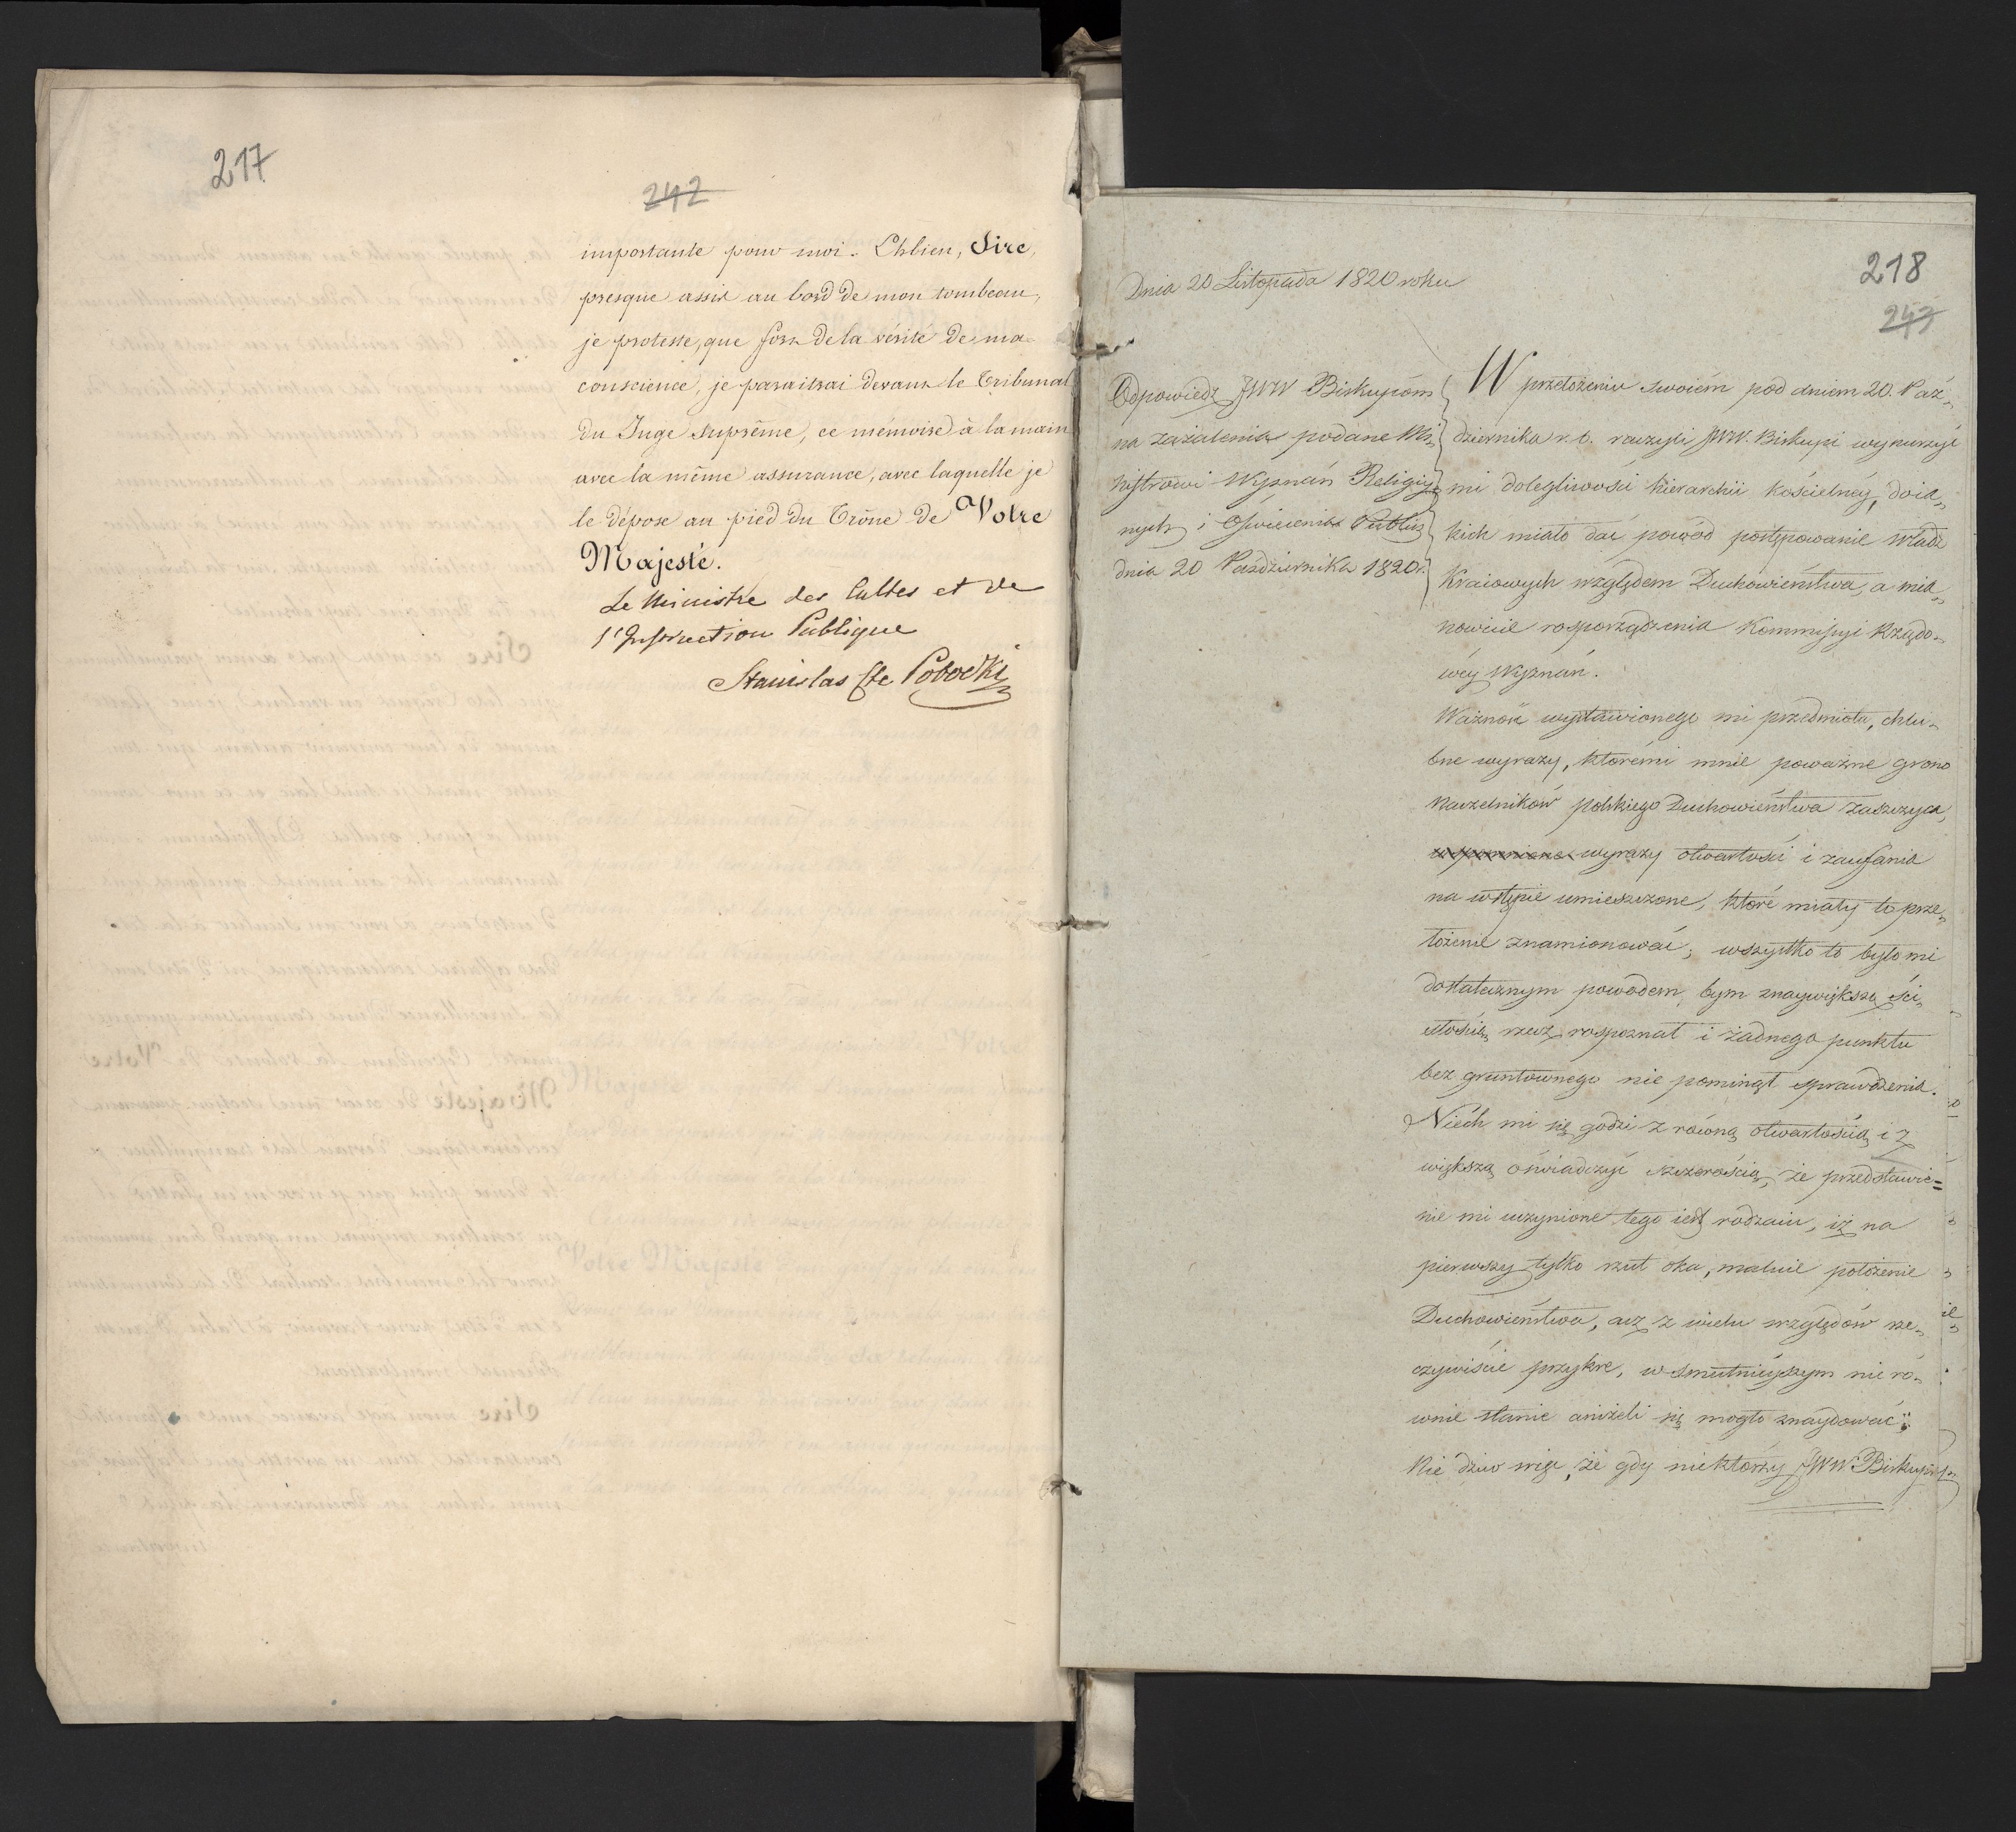 217
242
importante pour moi. Ehbien, Sire,
presque assis au bord de mon tombeau,
je proteste, que fort de la vérité de ma
conscience, je paraitrai devant le Tribunal
du Juge suprême, ce mémoire à la main
avec la même assurance, avec laquelle je
le dépose au pied du Trône de Votre
Majesté.
Le Ministre des Cultes et de
l'Instruction Publique
Stanislas Cte Potocki
218
243
Dnia 20 Listopada 1820 roku
Odpowiedz JWW Biskupóm
na zażalenia podane Mi„
nistrowi Wyznań Religiy„
nych i Oświecenia Public
dnia 20 Października 1820r.
W przełożeniu swoiém pod dniem 20. Paź„
dziernika r. b. raczyli JWW. Biskupi wynurzyć
mi dolegliwości hierarchii kościelnéy, do ia„
kich miało dać powód postępowanie władz
Kraiowych względem Duchowieństwa, a mia„
nowicie rosporządzenia Kommissyi Rządo„
wéy Wyznań.
Ważność wystawionego mi przedmiotu, chlu„
bne wyrazy, któremi mnie poważne grono
naczelników polskiego Duchowieństwa zaszczyca,
wspomniane wyrazy otwartości i zaufania
na wstępie umieszczone, które miały to prze„
łożenie znamionować; wszystko to było mi
dostatecznym powodem, bym znaywiększą ści„
słością rzecz rospoznał i żadnego punktu
bez gruntownego nie pominął sprawdzenia.
Niéch mi się godzi z równą otwartością i z
większą oświadczyć szczerością, że przedstawie=
nie mi uczynione tego iest rodzaiu, iż na
pierwszy tylko rzut oka, maluie położenie
Duchowieństwa, acz z wielu względów rze„
czywiście przykre, w smutnieyszym nie ró„
wnie stanie aniżeli się mogło znaydować;
Nie dziw więc, że gdy niektórzy JWW Biskupi